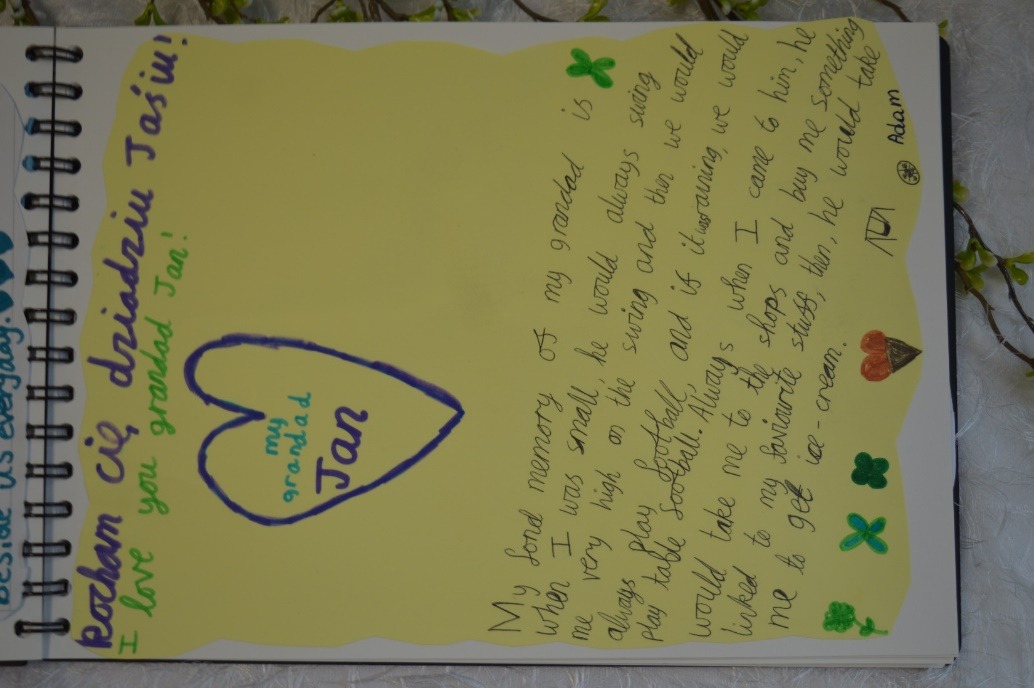 Kocham cię, dziadziu Jaśiu!
I love you grandad Jan!
my
grandad
Jan
My fond memory of my grandad is
when I was small, he would always swing
me very high on the swing and then we would
always play football, and if it was raining, we would
play table football. Always when I came to him, he
would take me to the shops and buy me something
linked to my faviourite stuff, then, he would take
me to get ice-cream.
Adam
beside us everyday.